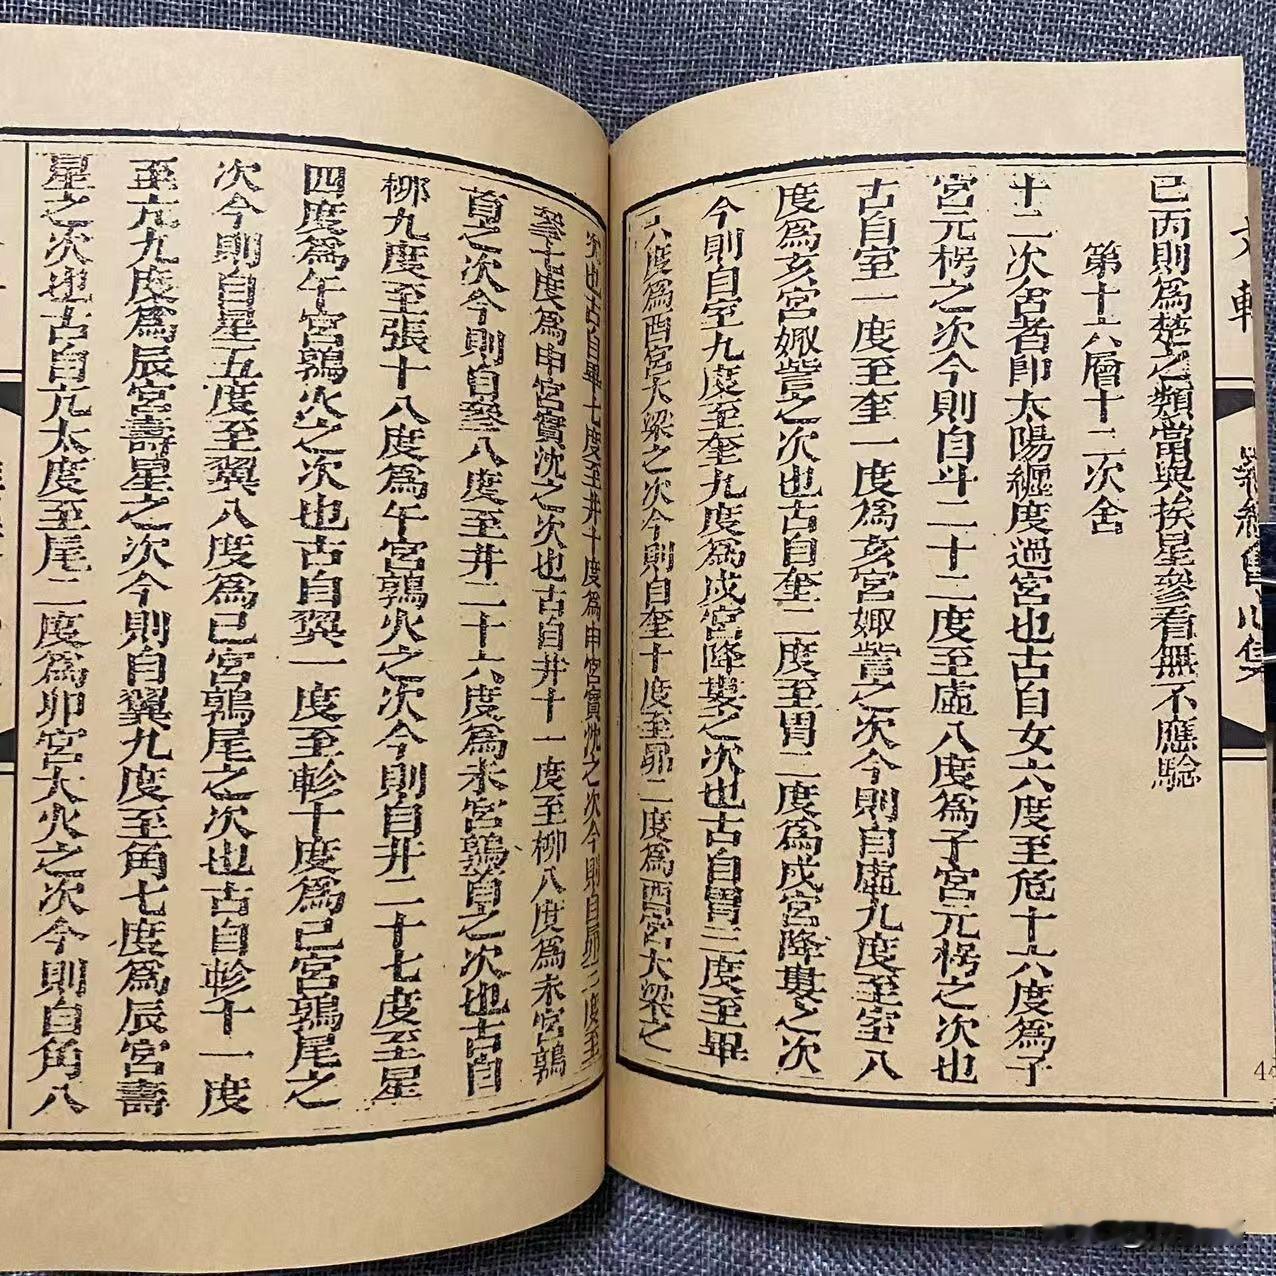 巳丙則爲楚之類當與挨星參看無不應驗
第十六層十二次舍
十二次舍者即太陽纏度過宮也古自女六度至危十六度爲子
宮元枵之次今則自斗二十二度至虛八度爲子宮元枵之次也
古自室一度至奎一度爲亥宮娵訾之次今則自虛九度至室八
度爲亥宮娵訾之次也古自奎二度至胃二度爲戌宮降婁之次
今則自室九度至奎九度爲戌宮降婁之次也古自胃三度至畢
六度爲酉宮大梁之次今則自奎十度至昴二度爲酉宮大梁之
次也古自畢七度至井十度爲申宮實沈之次今則自昴三度至
參七度爲申宮實沈之次也古自井十一度至柳八度爲未宮鶉
首之次今則自參八度至井二十六度爲未宮鶉首之次也古自
柳九度至張十八度爲午宮鶉火之次今則自井二十七度至星
四度爲午宮鶉火之次也古自翼一度至軫十度爲巳宮鶉尾之
次今則自星五度至翼八度爲巳宮鶉尾之次也古自軫十一度
至亢九度爲辰宮壽星之次今則自翼九度至角七度爲辰宮壽
星之次也古自亢太度至尾二度爲卯宮大火之次今則自角八